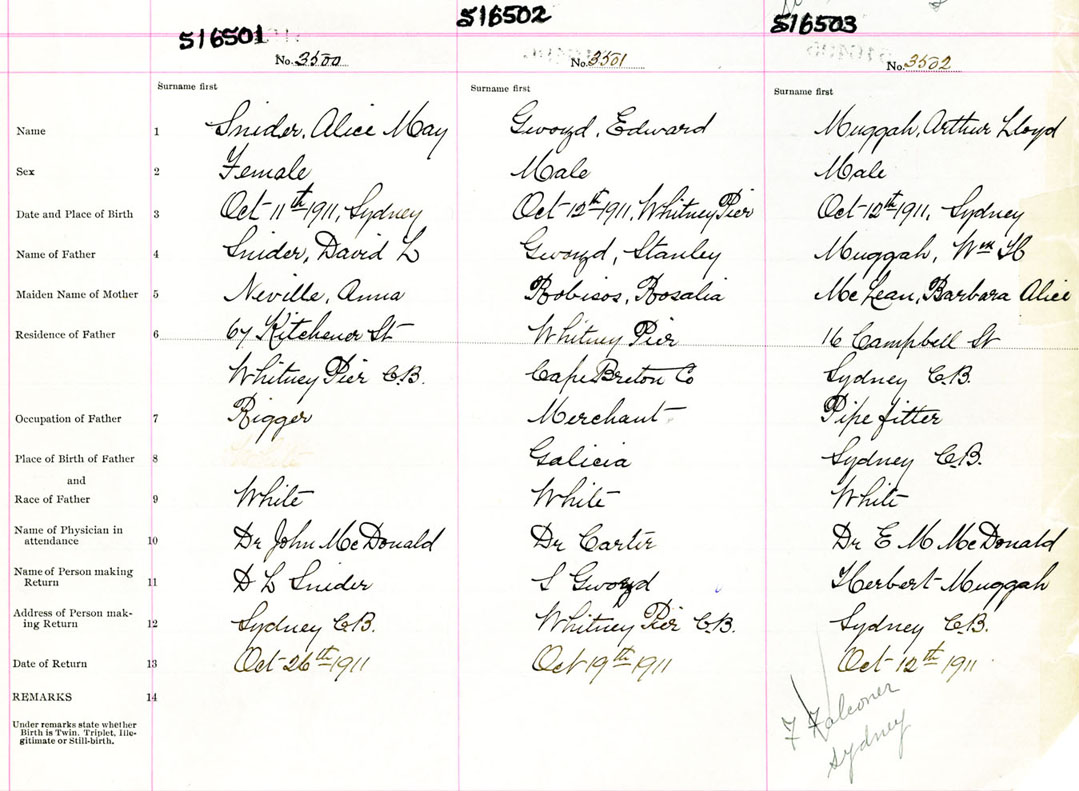 516501 516502 516503
No. 3500 No. 3501 No. 3502
Surname first Surname first Surname first
Name 1 Snider, Alice May Gwozd, Edward Muggah, Arthur Lloyd
Sex 2 Female Male Male
Date and Place of Birth 3 Oct 11th 1911, Sydney Oct 12th 1911, Whitney Pier Oct 12th 1911, Sydney
Name of Father 4 Snider, David L Gwozd, Stanley Muggah, Wm H
Maiden Name of Mother 5 Neville, Anna Robisos, Rosalia McLean, Barbara Alice
Residence of Father 6 67 Kitchener St Whitney Pier 16 Campbell St
Whitney Pier C.B. Cape Breton Co Sydney C.B.
Occupation of Father 7 Rigger Merchant Pipe fitter
Place of Birth of Father 8 Galicia Sydney C.B.
and
Race of Father 9 White White White
Name of Physician in
attendance 10 Dr John McDonald Dr Carter Dr E M McDonald
Name of Person making
Return 11 D L Snider S Gwozd Herbert Muggah
Address of Person mak-
ing Return 12 Sydney C.B. Whitney Pier C.B. Sydney C.B.
Date of Return 13 Oct 26th 1911 Oct 19th 1911 Oct 12th 1911
REMARKS 14
Under remarks state whether
Birth is Twin, Triplet, Ille-
gitimate or Still-birth.
F Falconer
Sydney